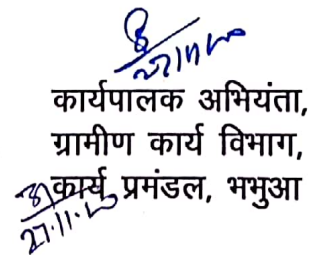 27/11/20
कार्यपालक अभियंता,
ग्रामीण कार्य विभाग,
कार्य प्रमंडल, भभुआ
27.11.20